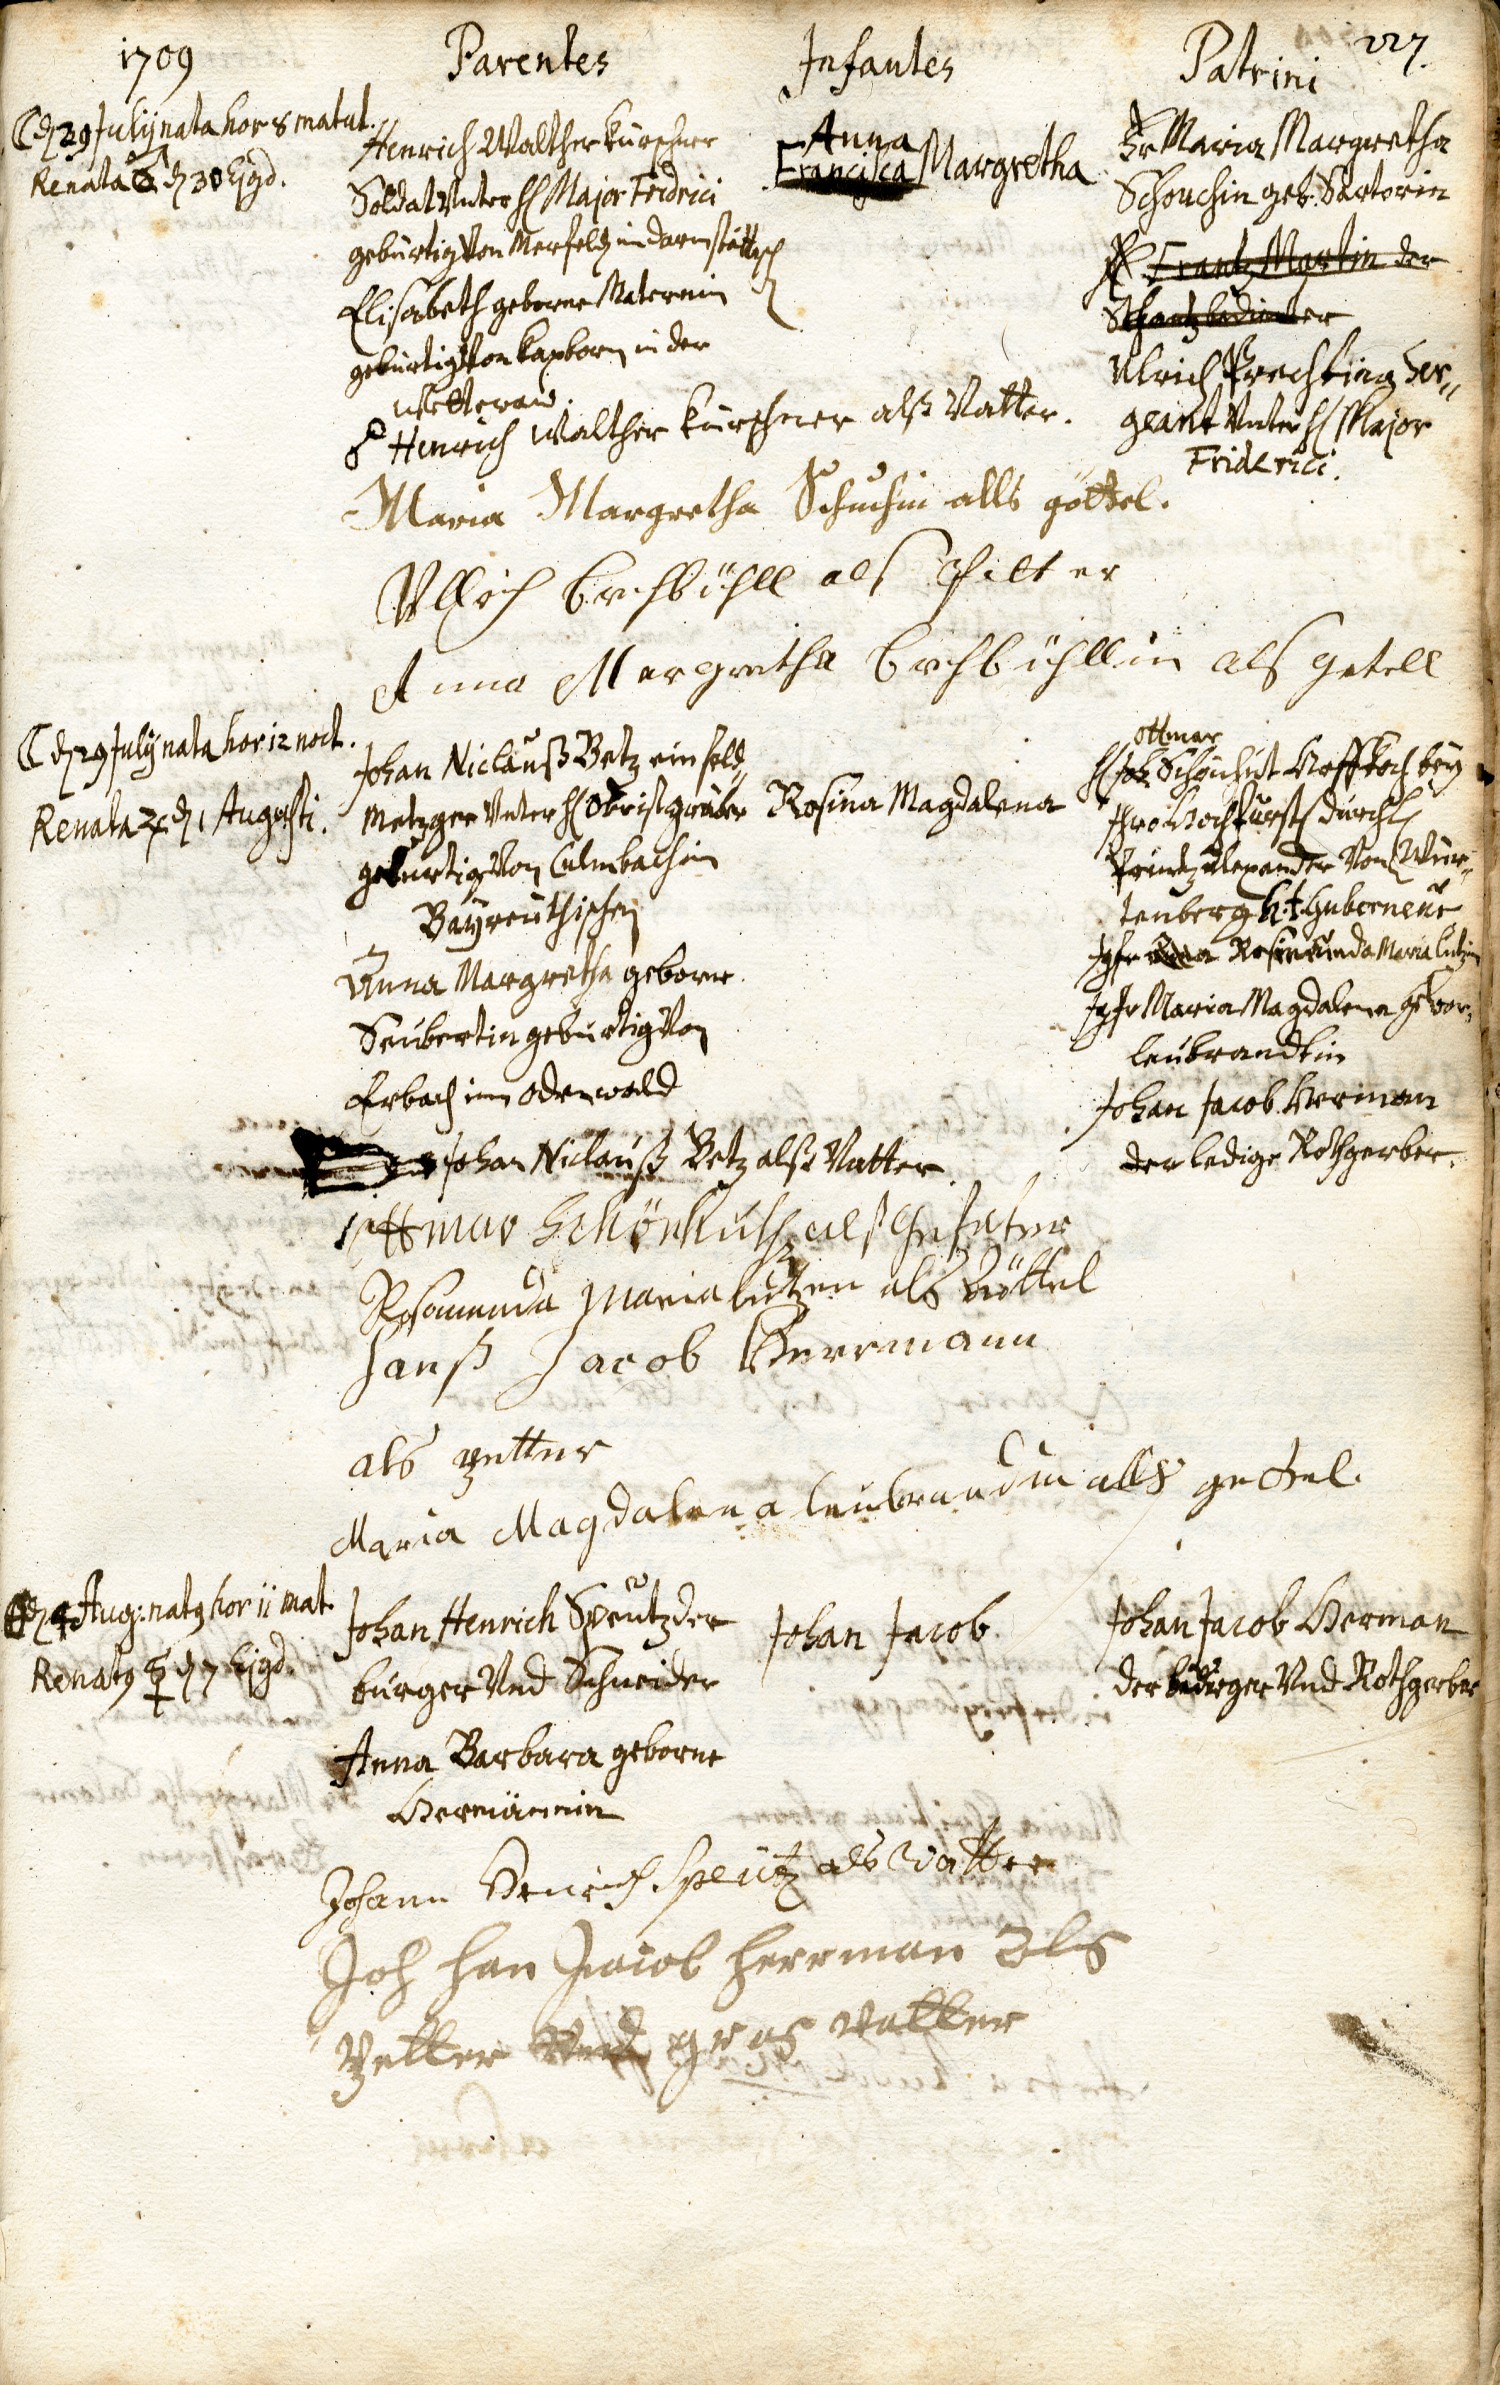 1709 Parentes Infantes Patrini 227.
☾ dñ 29 Julÿ nata hor 8 matut.
Renata ♂ dñ 30 Ejgd.
Henrich Walther Kürschner
Soldat Unter H Major Fridrici
gebürtig Von Merfeld im darmstättisch
Elisabeth geborne Maternin
gebürtig Von Kaxborn in der
Wetteraw.
Anna
Francisca Margretha
Fr Maria Margretha
Schuchin geb. Sartorin
H Frantz Martin der
Schantzbedienter
Ulrich Prechting Ser„
geant Unter H Major
Friderici.
Henrich Walther Kürschner alß Vatter.
Maria Margretha Schuchin alls göttel.
Ullrich Brechbühll als Pfetter
Anna Margretha Brechbühllin als getell
☾ dñ 29 Julÿ nata hor 12 noct.
Renata ♃ dñ 1 Augusti.
Johan Niclauß Betz ein feld„
Metzger Unter H Obrist gruber
gebürtig Von Culmbach im
Baÿreuthischen
Anna Margretha geborne
Seubertin gebürtig Von
Erbach im Odenwald
Rosina Magdalena
Ottmar
H Joh Schönhut Hoffkoch beÿ
Ihro Hochfürstl durchl
Printz Alexander Von Wür„
tenberg h.t. Guberneur
Jgfr Rosimunda Maria Lutzin
Jgfr Maria Magdalena gebor„
leubrandtin
Johan Jacob Herman
der ledige Rothgerber.
Johan Niclauß Betz alß Vatter.
Ottmar Schönhuth alß Gefater
Rosamunda Maria lutzen als Göttel
Hanß Jacob Herrmann
als pettter
Maria Magdalena leubrandin alls gettel.
dñ 4 Aug: nat9 hor 11 mat.
Renat9 ☿ dñ 7 Ejgd.
Johan Henrich Speutz der
burger Und Schneider
Anna Barbara geborne
Hermännin
Johan Jacob.
Johan Jacob Herman
der burger Und Rothgerber
Johann Henrich Speutz als Vatter
Joh han Jacob Herrman Als
Petter Und gros Vatter